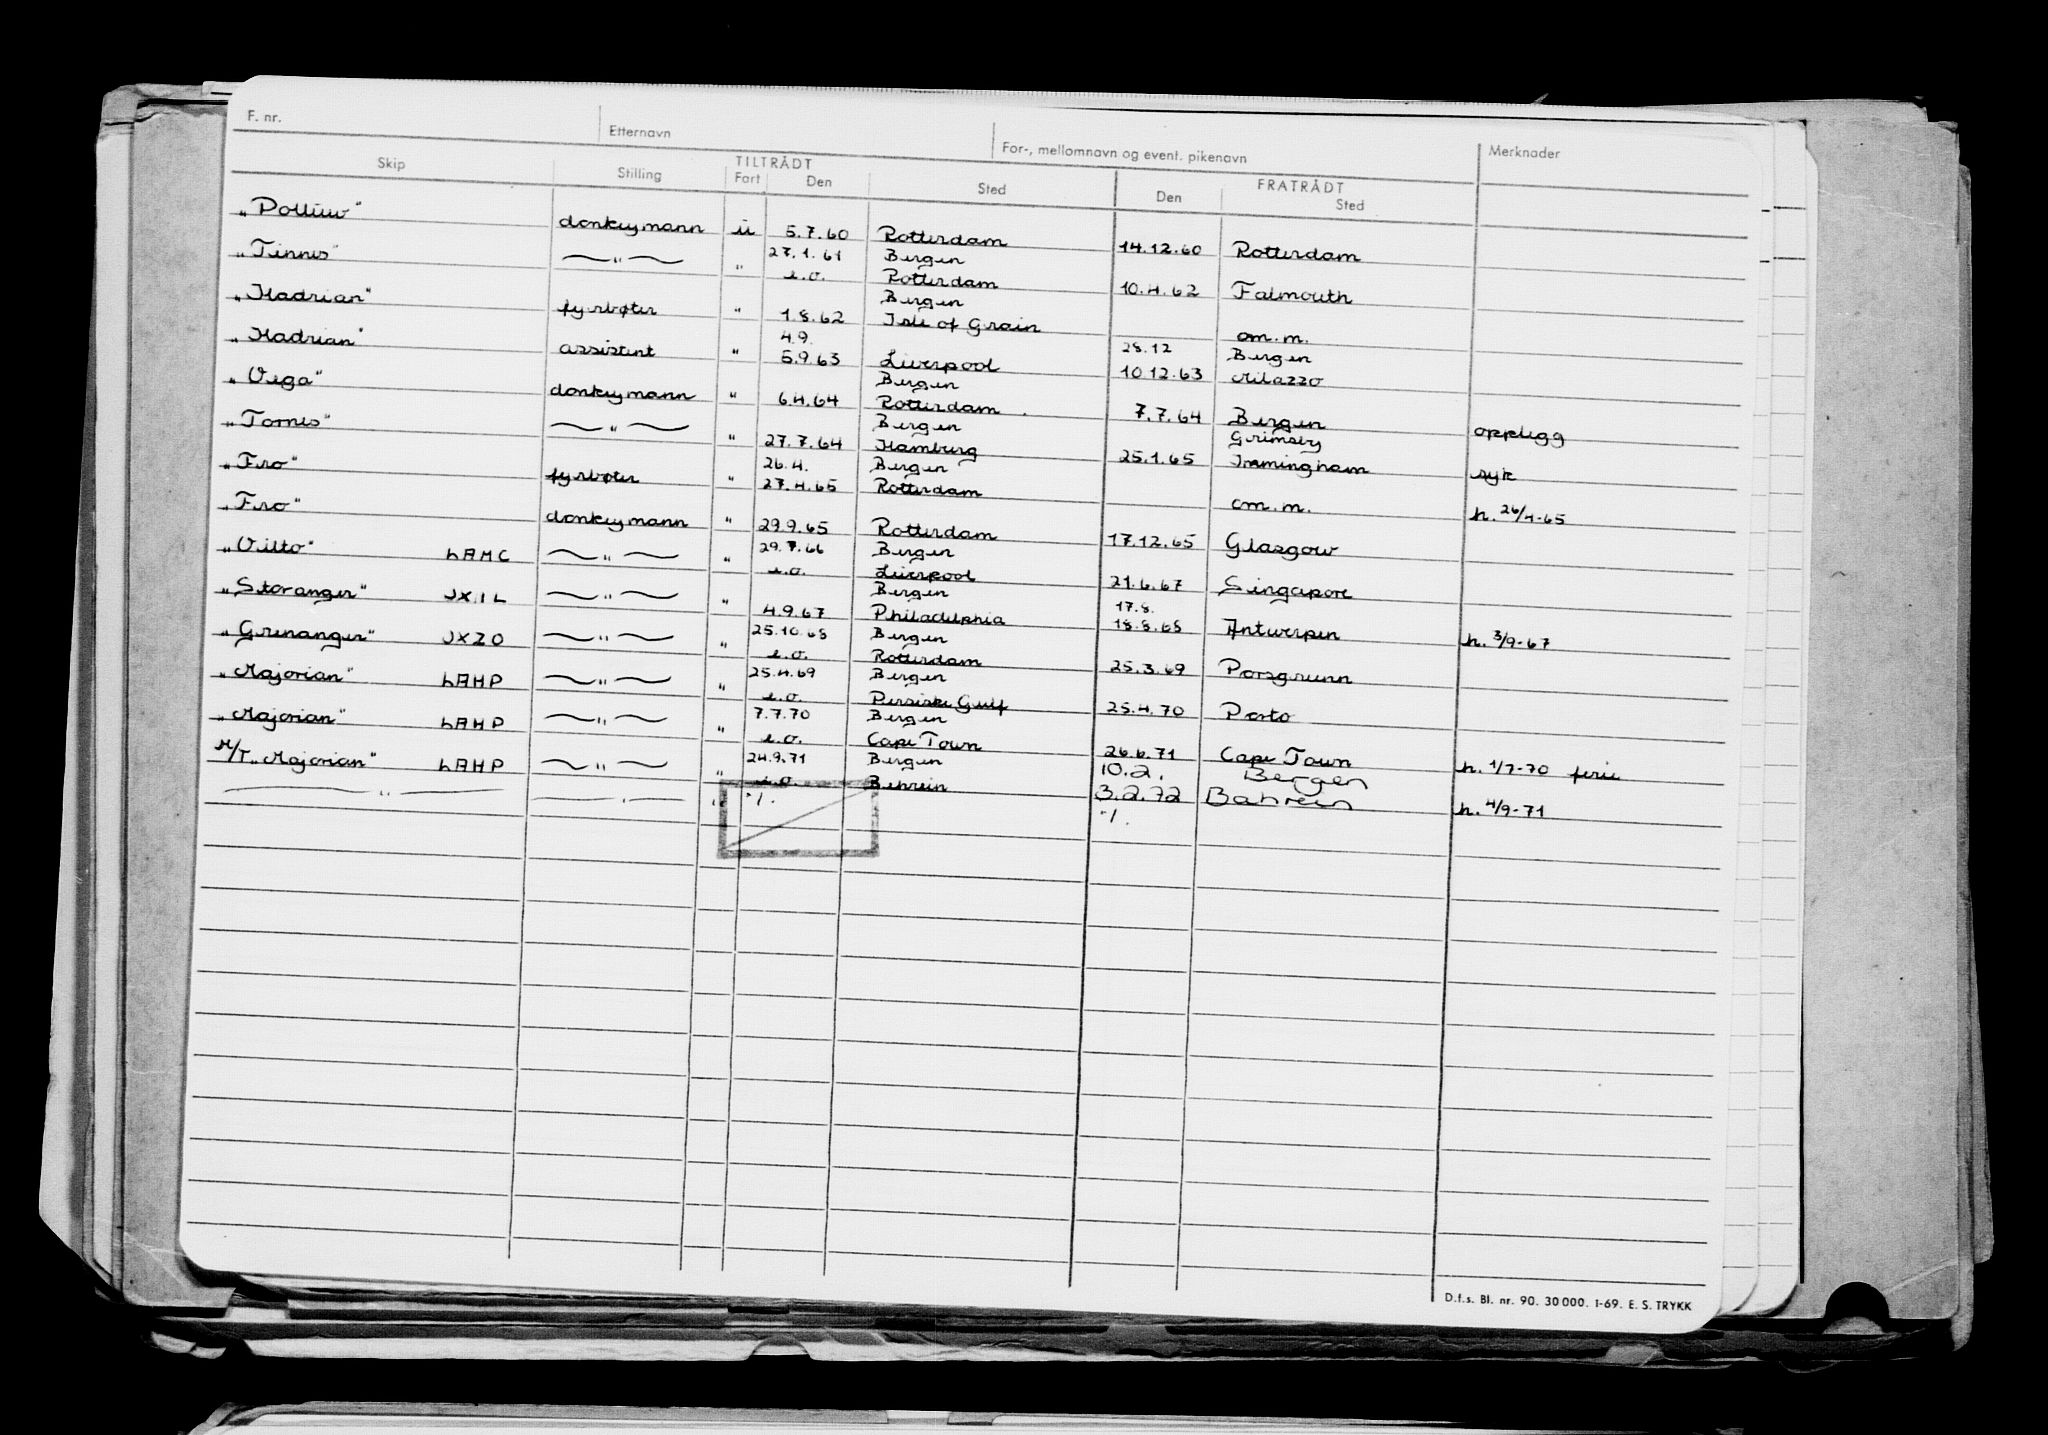 F. nr. Etternavn For-, mellomnavn og event. pikenavn Merknader
Skip Stilling TILTRÅDT Fart Den Sted FRATRÅDT Den Sted
donkeymann u 5.7.60 Rotterdam 14.12.60 Rotterdam
27.1.61 Bergen
„Tinnes" —„— „ e.o. Rotterdam 10.4.62 Falmouth
Bergen
„Hadrian" fyrbøter „ 1.8.62 Isle of Grain om.m.
4.9. 28.12 Bergen
„Hadrian" assistent „ 5.9.63 Liverpool 10.12.63 Milazzo
Bergen
„Vega" donkeymann „ 6.4.64 Rotterdam 7.7.64 Bergen opplegg
Bergen Grimsby
„Tornes" —„— „ 27.7.64 Hamburg 25.1.65 Immingham syk
26.4. Bergen
„Fro" fyrbøter „ 27.4.65 Rotterdam om.m. h. 26/4-65
„Fro" donkeymann „ 29.9.65 Rotterdam 17.12.65 Glasgow
29.7.66 Bergen
LAMC —„— „ e.o. Liverpool 21.6.67 Singapore
Bergen 17.8.
„Storanger" JXIL —„— „ 4.9.67 Philadelphia 18.8.68 Antwerpen h. 3/9-67
25.10.68 Bergen
„Grenanger" JXZO —„— „ e.o. Rotterdam 25.3.69 Porsgrunn
25.4.69 Bergen
„Majorian" LAHP —„— „ e.o. Persiske Gulf 25.4.70 Porto
7.7.70 Bergen
„Majorian" LAHP —„— „ e.o. Cape Town 26.6.71 Cape Town h. 1/7-70 ferie
24.9.71 Bergen 10.2. Bergen
M/T „Majorian" LAHP —„— „ e.o. Bahrein 3.2.72 Bahrein h. 4/9-71
—„— —„— „ -/. -/.
D.f.s. Bl. nr. 90. 30 000. 1-69. E. S. TRYKK